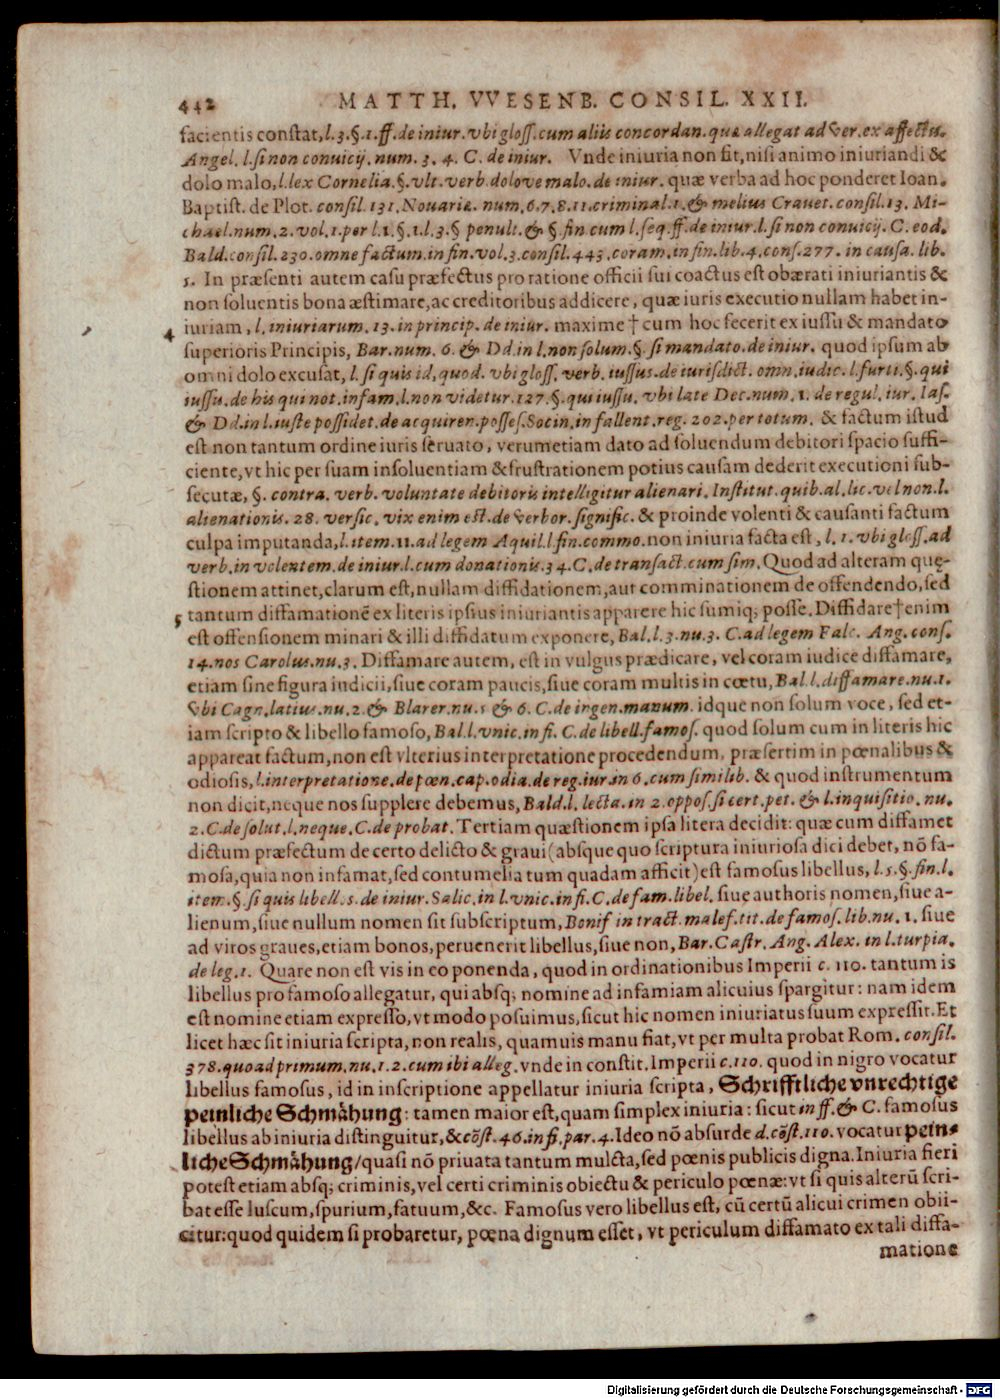 442 MATTH. VVESENB. CONSIL. XXII.
facientis constat, l. 3. §. 1. ff. de iniur. vbi gloss. cum aliis concordan. quæ allegat ad ver. ex affectu.
Angel. l. si non conuicij. num. 3. 4. C. de iniur. Vnde iniuria non fit, nisi animo iniuriandi &
dolo malo, l. lex Cornelia. §. vlt. verb. dolove malo. de iniur. quæ verba ad hoc ponderet Ioan.
Baptist. de Plot. consil. 131. Nouariæ. num. 6. 7. 8. 11. criminal. 1. & melius Crauet. consil. 13. Mi-
chael. num. 2. vol. 1. per l. 1. §. 1. l. 3. § penult. & §. fin. cum l. seq. ff. de iniur. l. si non conuicij. C. eod.
Bald. consil. 230. omne factum. in fin. vol. 3. consil. 443. coram. in fin. lib. 4. cons. 277. in causa. lib.
5. In præsenti autem casu præfectus pro ratione officii sui coactus est obærati iniuriantis &
non soluentis bona æstimare, ac creditoribus addicere, quæ iuris executio nullam habet in-
4 iuriam, l. iniuriarum. 13. in princip. de iniur. maxime † cum hoc fecerit ex iussu & mandato
superioris Principis, Bar. num. 6. & Dd. in l. non solum. §. si mandato. de iniur. quod ipsum ab
omni dolo excusat, l. si quis id, quod. vbi gloss. verb. iussus. de iurisdict. omn. iudic. l. furti. §. qui
iussu. de his qui not. infam. l. non videtur. 127. §. qui iussu. vbi late Dec. num. 1. de regul. iur. Ias.
& Dd. in l. iuste possidet. de acquiren. posses. Socin. in fallent. reg. 202. per totum. & factum istud
est non tantum ordine iuris seruato, verumetiam dato ad soluendum debitori spacio suffi-
ciente, vt hic per suam insoluentiam & frustrationem potius causam dederit executioni sub-
secutæ, §. contra. verb. voluntate debitoris intelligitur alienari. Institut. quib. al. lic. vel non. l.
alienationis. 28. versic. vix enim est. de verbor. signific. & proinde volenti & causanti factum
culpa imputanda, l. item. 11. ad legem Aquil. l. fin. commo. non iniuria facta est, l. 1. vbi gloss. ad
verb. in volentem. de iniur. l. cum donationis. 34. C. de transact. cum sim. Quod ad alteram quę-
stionem attinet, clarum est, nullam diffidationem, aut comminationem de offendendo, sed
5 tantum diffamationē ex literis ipsius iniuriantis apparere hic sumiq; posse. Diffidare † enim
est offensionem minari & illi diffidatum exponere, Bal. l. 3. nu. 3. C. ad legem Falc. Ang. cons.
14. nos Carolus. nu. 3. Diffamare autem, est in vulgus prædicare, vel coram iudice diffamare,
etiam sine figura iudicii, siue coram paucis, siue coram multis in cœtu, Bal. l. diffamare. nu. 1.
vbi Cagn. latius. nu. 2. & Blarer. nu. 5 & 6. C. de ingen. manum. idque non solum voce, sed et-
iam scripto & libello famoso, Bal. l. vnic. in fi. C. de libell. famos. quod solum cum in literis hic
appareat factum, non est vlterius interpretatione procedendum, præsertim in pœnalibus &
odiosis, l. interpretatione. de pœn. cap. odia. de reg. iur. in 6. cum similib. & quod instrumentum
non dicit, neque nos supplere debemus, Bald. l. lecta. in 2. oppos. si cert. pet. & l. inquisitio. nu.
2. C. de solut. l. neque. C. de probat. Tertiam quæstionem ipsa litera decidit: quæ cum diffamet
dictum præfectum de certo delicto & graui (absque quo scriptura iniuriosa dici debet, nō fa-
mosa, quia non infamat, sed contumelia tum quadam afficit) est famosus libellus, l. 5. §. fin. l.
item. §. si quis libell. s. de iniur. Salic. in l. vnic. in fi. C. de fam. libel. siue authoris nomen, siue a-
lienum, siue nullum nomen sit subscriptum, Bonif in tract. malef. tit. de famos. lib. nu. 1. siue
ad viros graues, etiam bonos, peruenerit libellus, siue non, Bar. Castr. Ang. Alex. in l. turpia.
de leg. 1. Quare non est vis in eo ponenda, quod in ordinationibus Imperii c. 110. tantum is
libellus pro famoso allegatur, qui absq; nomine ad infamiam alicuius spargitur: nam idem
est nomine etiam expresso, vt modo posuimus, sicut hic nomen iniuriatus suum expressit. Et
licet hæc sit iniuria scripta, non realis, quamuis manu fiat, vt per multa probat Rom. consil.
378. quo ad primum. nu. 1. 2. cum ibi alleg. vnde in constit. Imperii c. 110. quod in nigro vocatur
libellus famosus, id in inscriptione appellatur iniuria scripta, Schrifftliche vnrechtige
peinliche Schmåhung: tamen maior est, quam simplex iniuria: sicut in ff. & C. famosus
libellus ab iniuria distinguitur, & cōst. 46. in fi. par. 4. Ideo nō absurde d. cōst. 110. vocatur pein-
liche Schmåhung/ quasi nō priuata tantum mulcta, sed pœnis publicis digna. Iniuria fieri
potest etiam absq; criminis, vel certi criminis obiectu & periculo pœnæ: vt si quis alterū scri-
bat esse luscum, spurium, fatuum, &c. Famosus vero libellus est, cū certū alicui crimen obii-
citur: quod quidem si probaretur, pœna dignum esset, vt periculum diffamato ex tali diffa-
matione
Digitalisierung gefördert durch die Deutsche Forschungsgemeinschaft - DFG